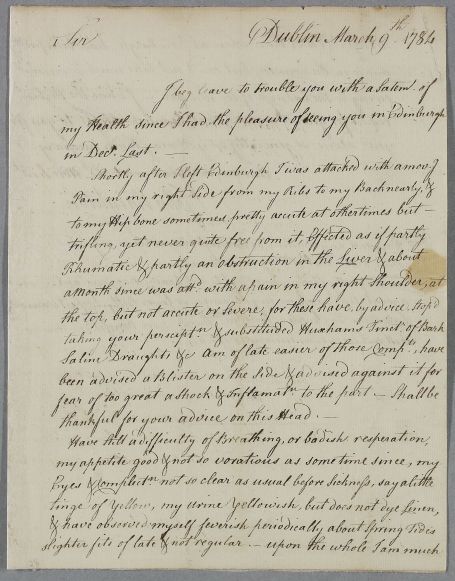 Sir Dublin March 9th. 1784
I beg leave to trouble you with a Satemt. of
my Health since I had the pleasure of seeing you in Edinburgh
in Decr. Last. —
Shortly after I left Edinburgh I was attacked with a
Pain in my right Side from my Ribs to my Back nearly, &
to my Hip bone sometimes, pretty accute at other times but —
trifling, yet never quite free from it, Effected as if partly
Rhumatic & partly an obstruction in the Liver & about
a Month since was attd. with a pain in my right Shoulder, at
the top, but not accute or Severe, for these have, by advice, Stop'd
taking your perscriptn. & substituded Huxham's Tinctr. of Bark
Saline Draughts &c am of late easier of those Compts., have
been advised a Blister on the Side & advised against it for
fear of too great a Shock & Inflamatn. to the part — Shall be
thankful for your advice on this Head. —
Have Still a difficulty of Breathing, or badish resperation,
my appetite good & not so voratious as some time since, my
Eyes & Complectn. not so clear as usual before Sickness, say a little
tinge of Yellow, my urine Yellowish, but does not dye Linen,
& have observed myself feverish periodically about Spring Tides
slighter fits of late & not regular. — upon the whole I am much